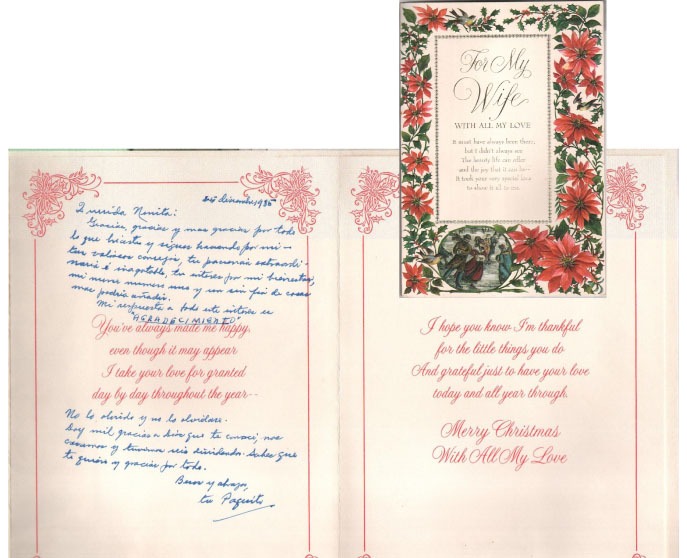 For My
Wife
WITH ALL MY LOVE
It must have always been there,
but I didn't always see
The beauty life can offer
and the joy that it can be—
It took your very special love
to show it all to me.
24 diciembre, 1986
Querida Nenita:
Gracias, gracias y mas gracias por todo
lo que hiciste y sigues haciendo por mi –
tus valiosos consejos, tu paciencia extraordi-
naria é inagotable, tu interes por mi bienestar,
mi numero uno y un sin fin de cosas
mas podria añadir.
Mi respuesta a todo este interes es
"AGRADECIMIENTO"
You've always made me happy,
even though it may appear
I take your love for granted
day by day throughout the year--
No lo olvido y no lo olvidare.
Doy mil gracias a Dios que te conoci, nos
casamos y tuvimos seis
te quiero y gracias por todo.
Besos y abrazos,
tu Paquito
I hope you know I'm thankful
for the little things you do
And grateful just to have your love
today and all year through.
Merry Christmas
With All My Love